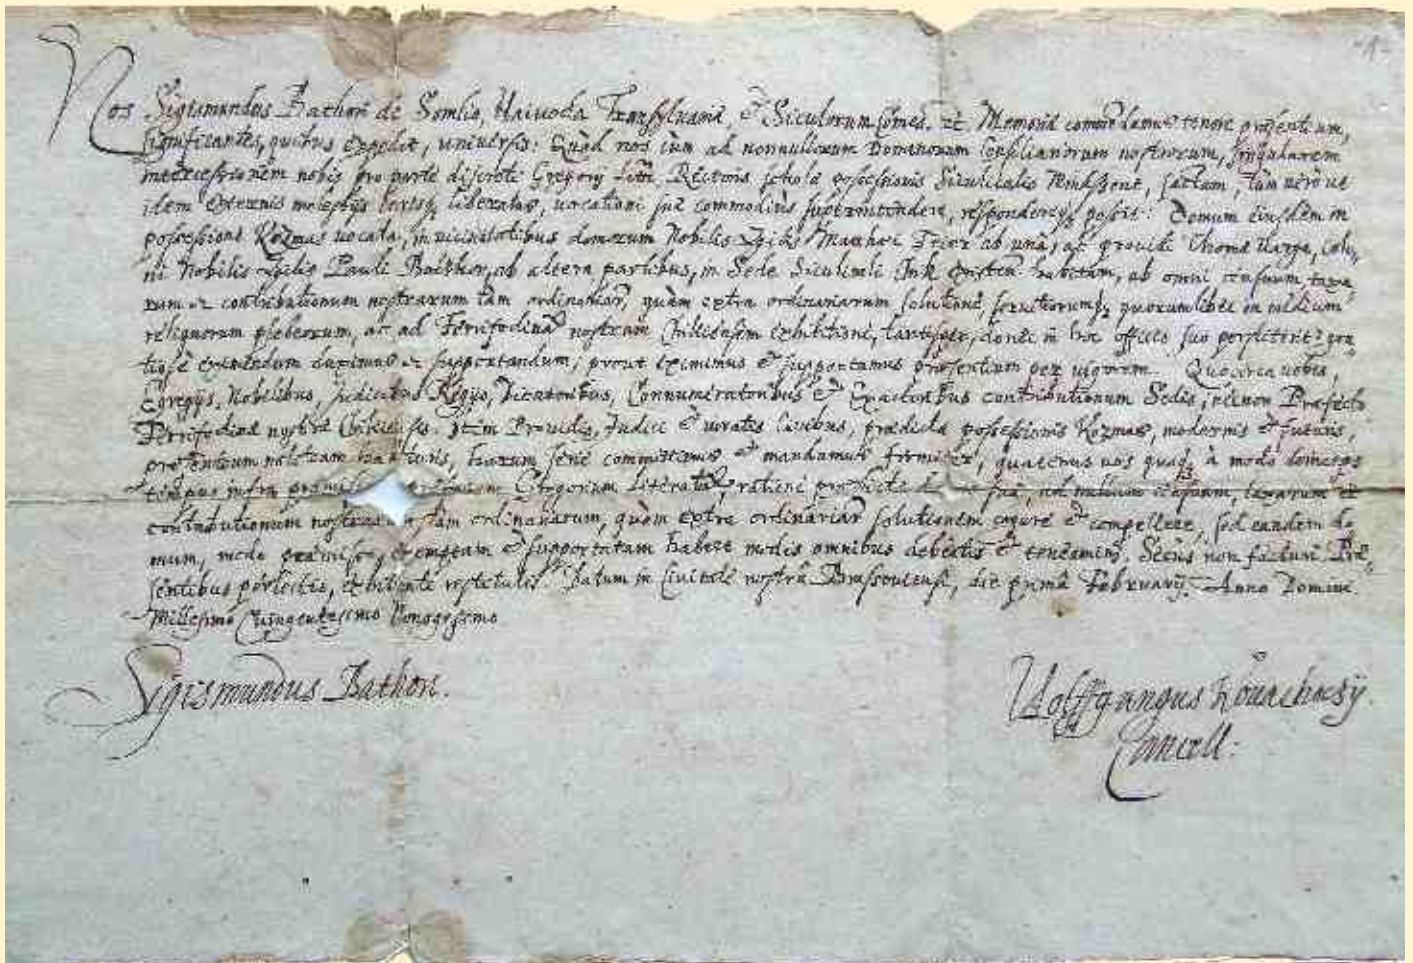 Nos Sigismundus Bathori de Somlio, Vaivoda Transylvaniæ, et Siculorum Comes. etc. Memoriæ commendamus tenore præsentium,
significantes, quibus expedit, universis: Quòd nos cùm ad nonnullorum Dominorum Consiliariorum nostrorum, singularem
intercessionem nobis pro parte discreti Gregorÿ Litti Rectoris scholæ possessionis Siculicalis Mindszent, factam, tùm verò ut
idem externis molestÿs liberatus, vocationi suæ commodiùs superintendere, respondereq; possit: Domum eiusdem in
possessione Kozmas vocata, in vicinitatibus domorum Nobilis ab unâ, ac providi Thomæ Varga,
Nobilis Pauli ab altera partibus, in Sede Siculicali habitam, ab omni censuum, taxa-
rum et contributionum nostrarum tàm ordinariarũ, quàm extra ordinariarum solutione, servitiorumq; quorumlibet in medium
reliquorum plebeorum, ac ad Ferrifodinã nostram Chikiensem exhibitione, tantisper, donec in hoc officio suo perstiterit, gra-
tiosè eximendum duximus et supportandum; prout eximimus et supportamus præsentium per vigorem. Quocirca vobis,
Egregÿs, Nobilibus, Judicibus Regÿs, Dicatoribus, Connumeratoribus et Exactoribus contributionum Sedis, necnon Præfecto
Ferrifodinæ nostræ Chikiensis. Item Providis, Judici et iuratis Civibus, prædictæ possessionis Kozmas, modernis et futuris,
præsentium notitiam habituris, harum serie committimus et mandamus firmiter, quatenus vos quoq; à modo deinceps
tempus infra Gregorium Literatũ, ratione præfectæ domus suæ, ad nullam censuum, taxarum et
contributionum nostrarum tàm ordinariarum, quàm extra ordinariarũ solutionem cogere et compellere, sed eandem do-
mum, modo præmisso, exemptam et supportatam habere modis omnibus debeatis et teneamini. Secus non facturi. Præ-
sentibus perlectis, exhibenti restitutis. Datum in Civitate nostra Brassoviensi, die prima Februarÿ. Anno Domini
Millesimo Quingentesimo Nonagesimo
Sigismundus Bathori.
Wolffgangus Kouachoczÿ
Cancell: